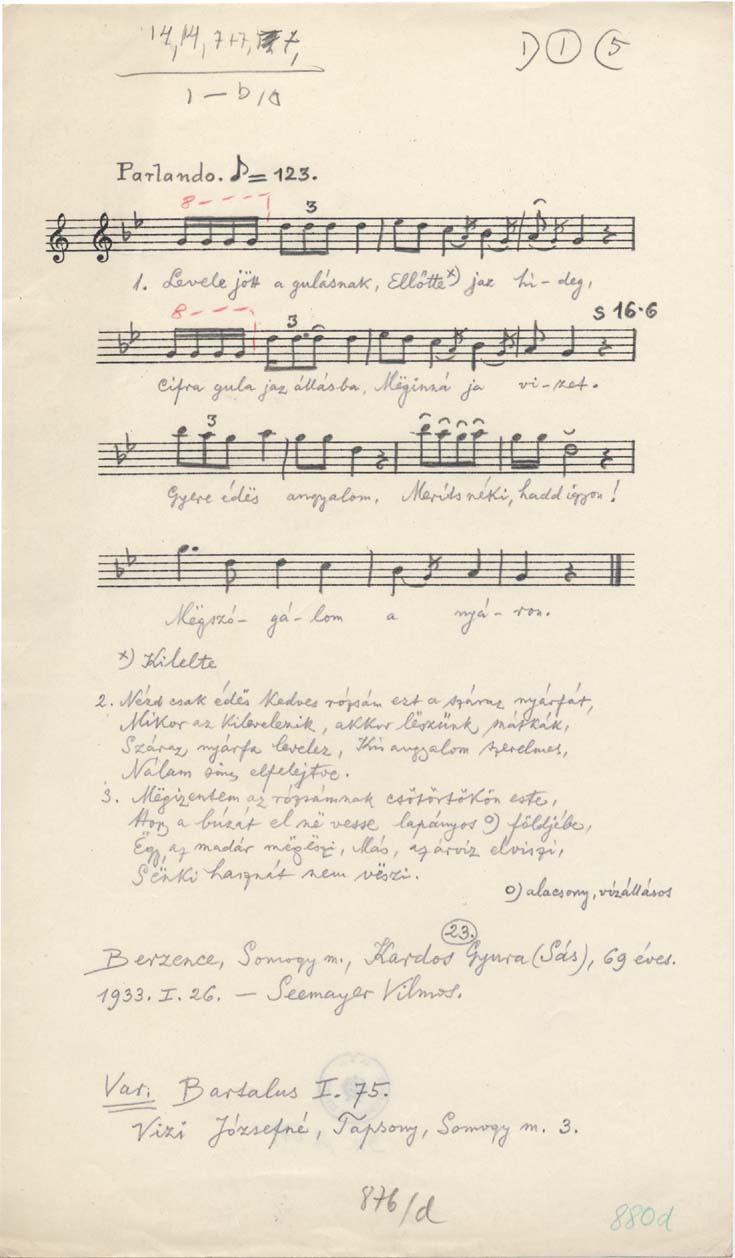 14, 14, 7+7, 7,
1 – b/3
1) 1 5
Parlando. ♪ = 123.
8
3
1. Levele jött a gulásnak, Ellőtte x) jaz hi-deg,
8
3
S 16·6
Cifra gula jaz állásba, Mëginná ja vi-zet.
3
Gyere édës angyalom, Meríts néki, hadd igyon!
Mëgszó- gá-lom a nyá-ron.
x) Kilelte
2. Nézd csak édës kedves rózsám ezt a száraz nyárfát,
Mikor az kilevelezik, akkor lëszünk mátkák,
Száraz nyárfa levelez, Kis angyalom szerelmes,
Nálam sincs elfelejtve.
3. Mëgizentem az rózsámnak csötörtökön este,
Hogy a búzát el në vesse lapányos o) földjébe,
Ëgy, az madár mëgëszi, Más, az árvíz elviszi,
Sënki hasznát nem vëszi.
o) alacsony, vízállásos
23.
Berzence, Somogy m., Kardos Gyura (Sás), 69 éves.
1933. I. 26. – Seemayer Vilmos.
Var. Bartalus I. 75.
Vizi Józsefné, Tapsony, Somogy m. 3.
876/d
880d